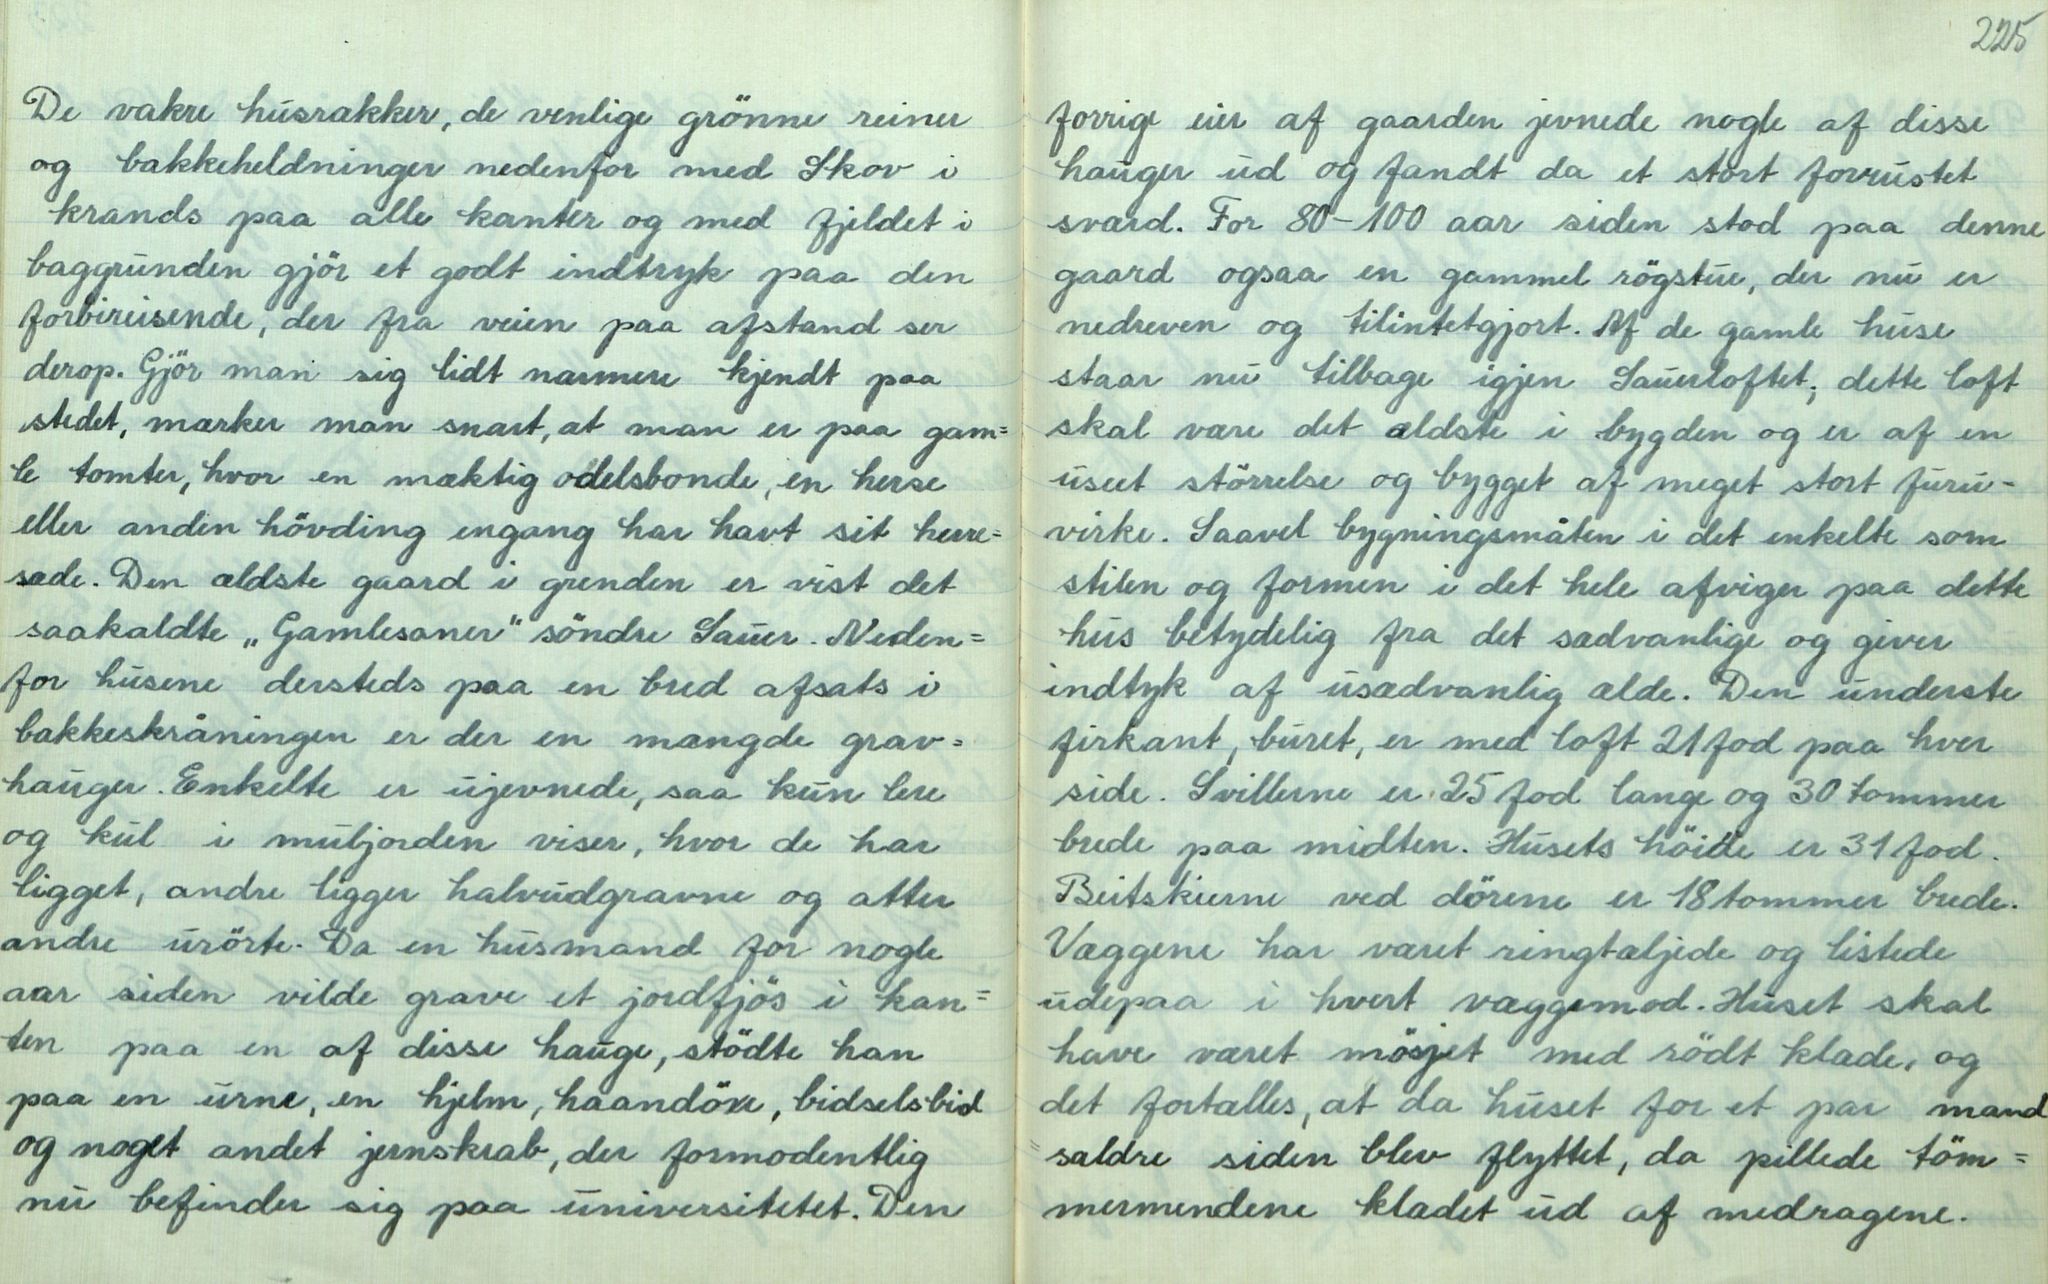 De vakre husrækker, de venlige grönne reiner
og bakkeheldninger nedenfor med Skov i
krands paa alle kanter og med fjeldet i
baggrunden gjör et godt indtryk paa den
forbireisende, der fra veien paa afstand ser
derop. Gjör man sig lidt nærmere kjendt paa
stedet, mærker man snart, at man er paa gam=
le tomter, hvor en mæktig odelsbonde, en herse
eller anden hövding engang har havt sit herre=
sæde. Den ældste gaard i grenden er vist det
saakaldte „Gamlesaner" söndre Sauer. Neden=
for husene dersteds paa en bred afsats i
bakkeskråningen er der en mængde grav=
hauger. Enkelte er ujevnede, saa kun lere
og kul i muljorden viser, hvor de har
ligget, andre ligger halvudgravne og atter
andre urörte. Da en husmand for nogle
aar siden vilde grave et jordfjös i kan=
ten paa en af disse hauge, stödte han
paa en urne, en hjelm, haandöxe, bidselsbid
og noget andet jernskrab, der formodentlig
nu befinder sig paa universitetet. Den
225
forrige eier af gaarden jevnede nogle af disse
hauger ud og fandt da et stort forrustet
sværd. For 80-100 aar siden stod paa denne
gaard ogsaa en gammel rögstue, der nu er
nedreven og tilintetgjort. Af de gamle huse
staar nu tilbage igjen Sauerloftet; dette loft
skal være det ældste i bygden og er af en
useet störrelse og bygget af meget stort furu-
virke. Saavel bygningsmåten i det enkelte som
stilen og formen i det hele afviger paa dette
hus betydelig fra det sædvanlige og giver
indtyk af usædvanlig ælde. Den underste
firkant, buret, er med loft 21 fod paa hver
side. Svillerne er 25 fod lange og 30 tommer
brede paa midten. Husets höide er 31 fod.
Beitskierne ved dörene er 18 tommer brede.
Væggene har været ringtæljede og listede
udepaa i hvert væggemod. Huset skal
have været mösjet med rödt klæde, og
det fortælles, at da huset for et par mand
=saldre siden blev flyttet, da pillede töm=
mermendene klædet ud af medragene.